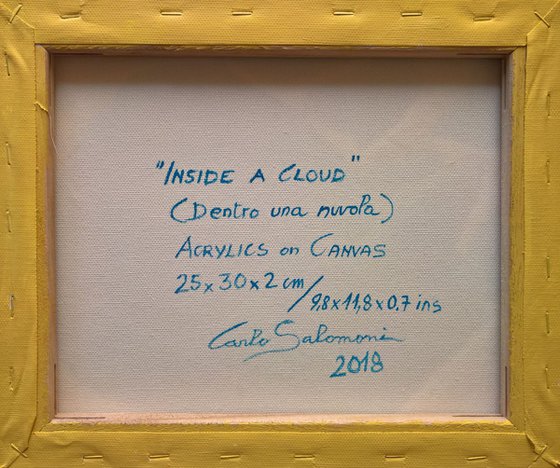 "INSIDE A CLOUD"
(Dentro una nuvola)
ACRYLICS on CANVAS
25x30x2 cm/9,8x11,8x0.7 ins
Carlo Salomoni
2018